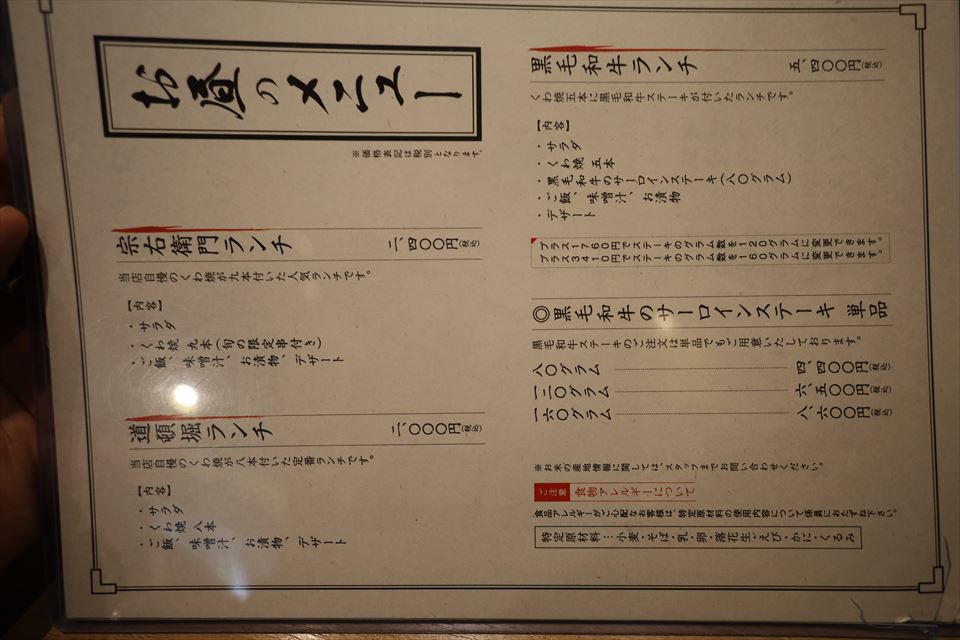 お昼のメニュー
※価格表記は税別となります。
宗右衛門ランチ 二、四〇〇円(税込)
当店自慢のくわ焼が九本付いた人気ランチです。
【内容】
・サラダ
・くわ焼 九本(旬の限定串付き)
・ご飯、味噌汁、お漬物、デザート
道頓堀ランチ 二、〇〇〇円(税込)
当店自慢のくわ焼が八本付いた定番ランチです。
【内容】
・サラダ
・くわ焼 八本
・ご飯、味噌汁、お漬物、デザート
黒毛和牛ランチ 五、四〇〇円(税込)
くわ焼五本に黒毛和牛ステーキが付いたランチです。
【内容】
・サラダ
・くわ焼 五本
・黒毛和牛のサーロインステーキ(八〇グラム)
・ご飯、味噌汁、お漬物
・デザート
プラス1760円でステーキのグラム数を120グラムに変更できます。
プラス3410円でステーキのグラム数を160グラムに変更できます。
◎黒毛和牛のサーロインステーキ 単品
黒毛和牛ステーキのご注文は単品でもご用意いたしております。
八〇グラム 四、四〇〇円(税込)
一二〇グラム 六、五〇〇円(税込)
一六〇グラム 八、六〇〇円(税込)
※お米の産地情報に関しては、スタッフまでお問い合わせください。
ご注意 食物アレルギーについて
食品アレルギーがご心配なお客様は、特定原材料の使用内容について係員におたずね下さい。
特定原材料…小麦・そば・乳・卵・落花生・えび・かに・くるみ